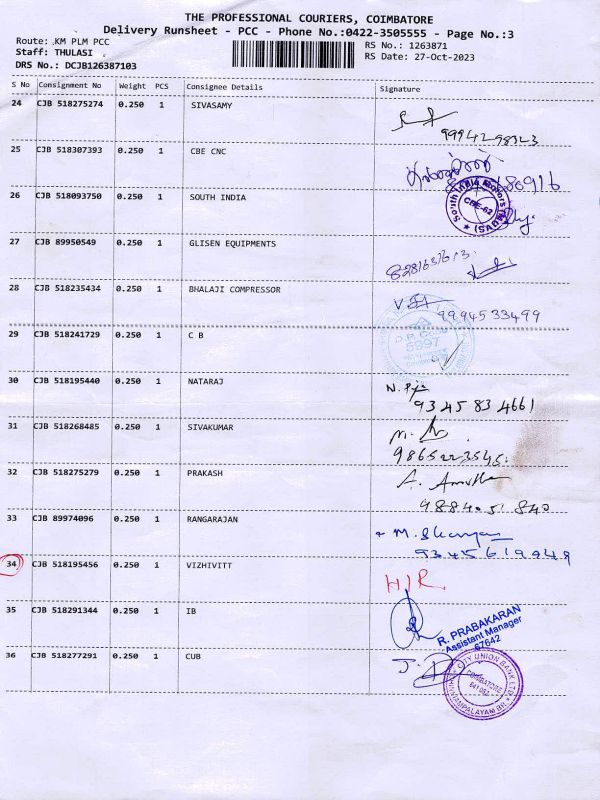 THE PROFESSIONAL COURIERS, COIMBATORE
Delivery Runsheet - PCC - Phone No.:0422-3505555 - Page No.:3
Route: KM PLM PCC
RS No.: 1263871
Staff: THULASI
RS Date: 27-Oct-2023
DRS No.: DCJB126387103
S No Consignment No Weight PCS Consignee Details Signature
24 CJB 518275274 0.250 1 SIVASAMY
9994298323
25 CJB 518307393 0.250 1 CBE CNC
26 CJB 518093750 0.250 1 SOUTH INDIA
South India Motors
CBE-62
27 CJB 89950549 0.250 1 GLISEN EQUIPMENTS
28 CJB 518235434 0.250 1 BHALAJI COMPRESSOR
9994533499
29 CJB 518241729 0.250 1 C B
D.P. Code
5597
30 CJB 518195440 0.250 1 NATARAJ
9345834661
31 CJB 518268485 0.250 1 SIVAKUMAR
9865223545
32 CJB 518275279 0.250 1 PRAKASH
33 CJB 89974096 0.250 1 RANGARAJAN
34 CJB 518195456 0.250 1 VIZHIVITT
H/R
35 CJB 518291344 0.250 1 IB
R. PRABAKARAN
Assistant Manager
67642
36 CJB 518277291 0.250 1 CUB
CITY UNION BANK LTD
COIMBATORE